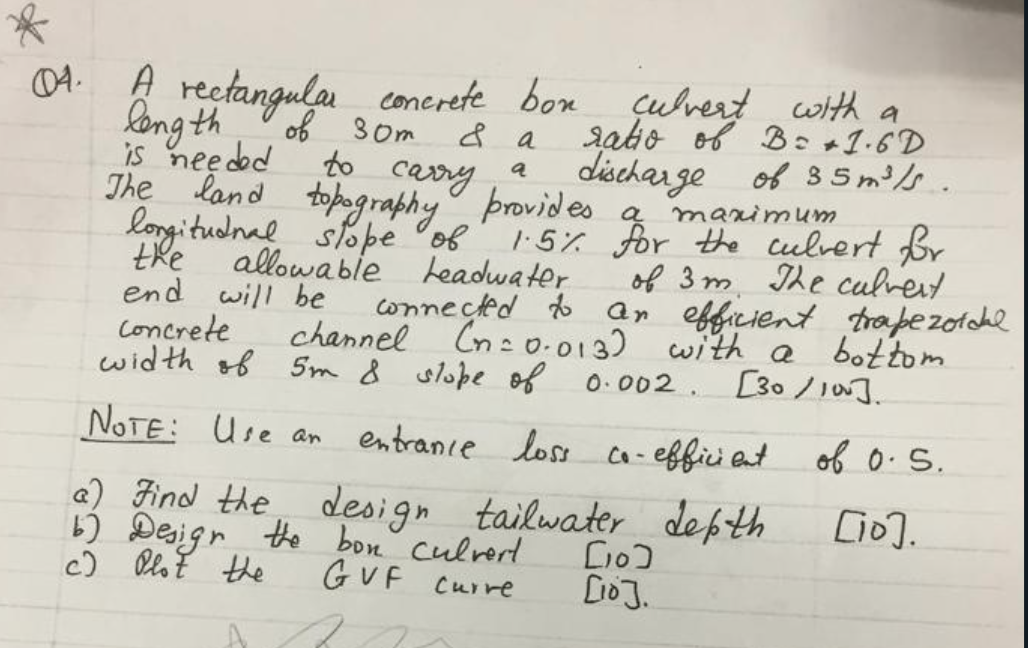 Q4. A rectangular concrete box culvert with a
length of 30m & a ratio of B = 1.6D
is needed to carry a discharge of 35m³/s.
The land topography provides a maximum
longitudnal slope of 1.5% for the culvert for
the allowable headwater of 3m. The culvert
end will be connected to an efficient trapezoidal
concrete channel (n=0.013) with a bottom
width of 5m & slope of 0.002. [30/100].
NOTE: Use an entrance loss co-efficient of 0.5.
a) Find the design tailwater depth [10].
b) Design the box culvert [10]
c) Plot the GVF curve [10].